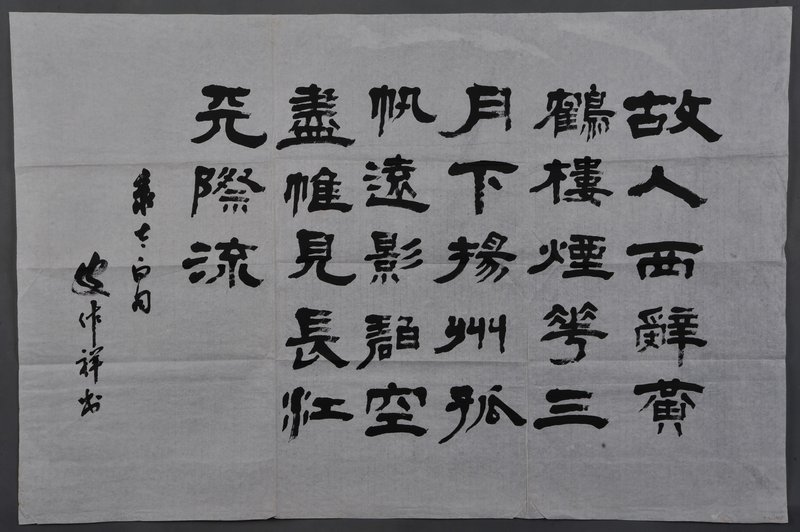 故人西辭黃
鶴樓煙華三
月下揚州孤
帆遠影碧空
盡惟見長江
天際流
太白句
作祥书